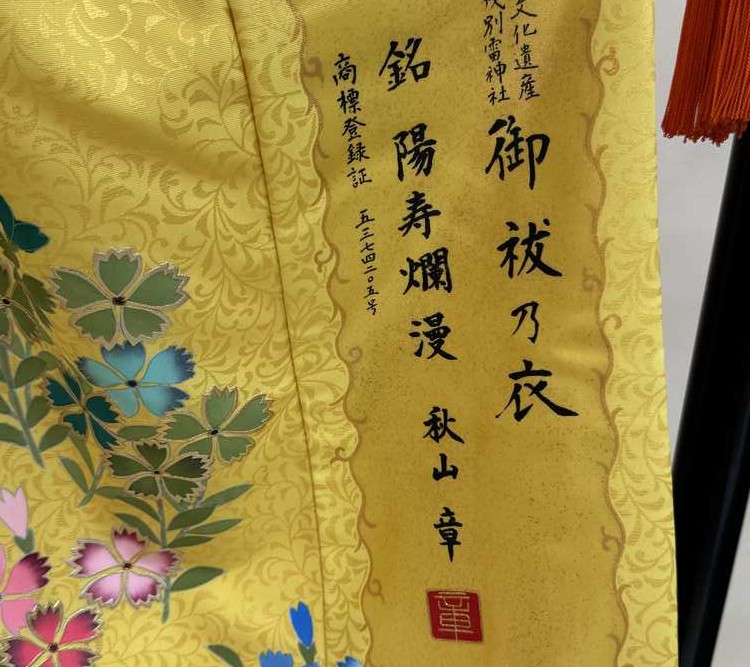 文化遺産
別雷神社
御祓乃衣
銘 陽寿爛漫 秋山 章
商標登録証 五三七四二〇五号
章